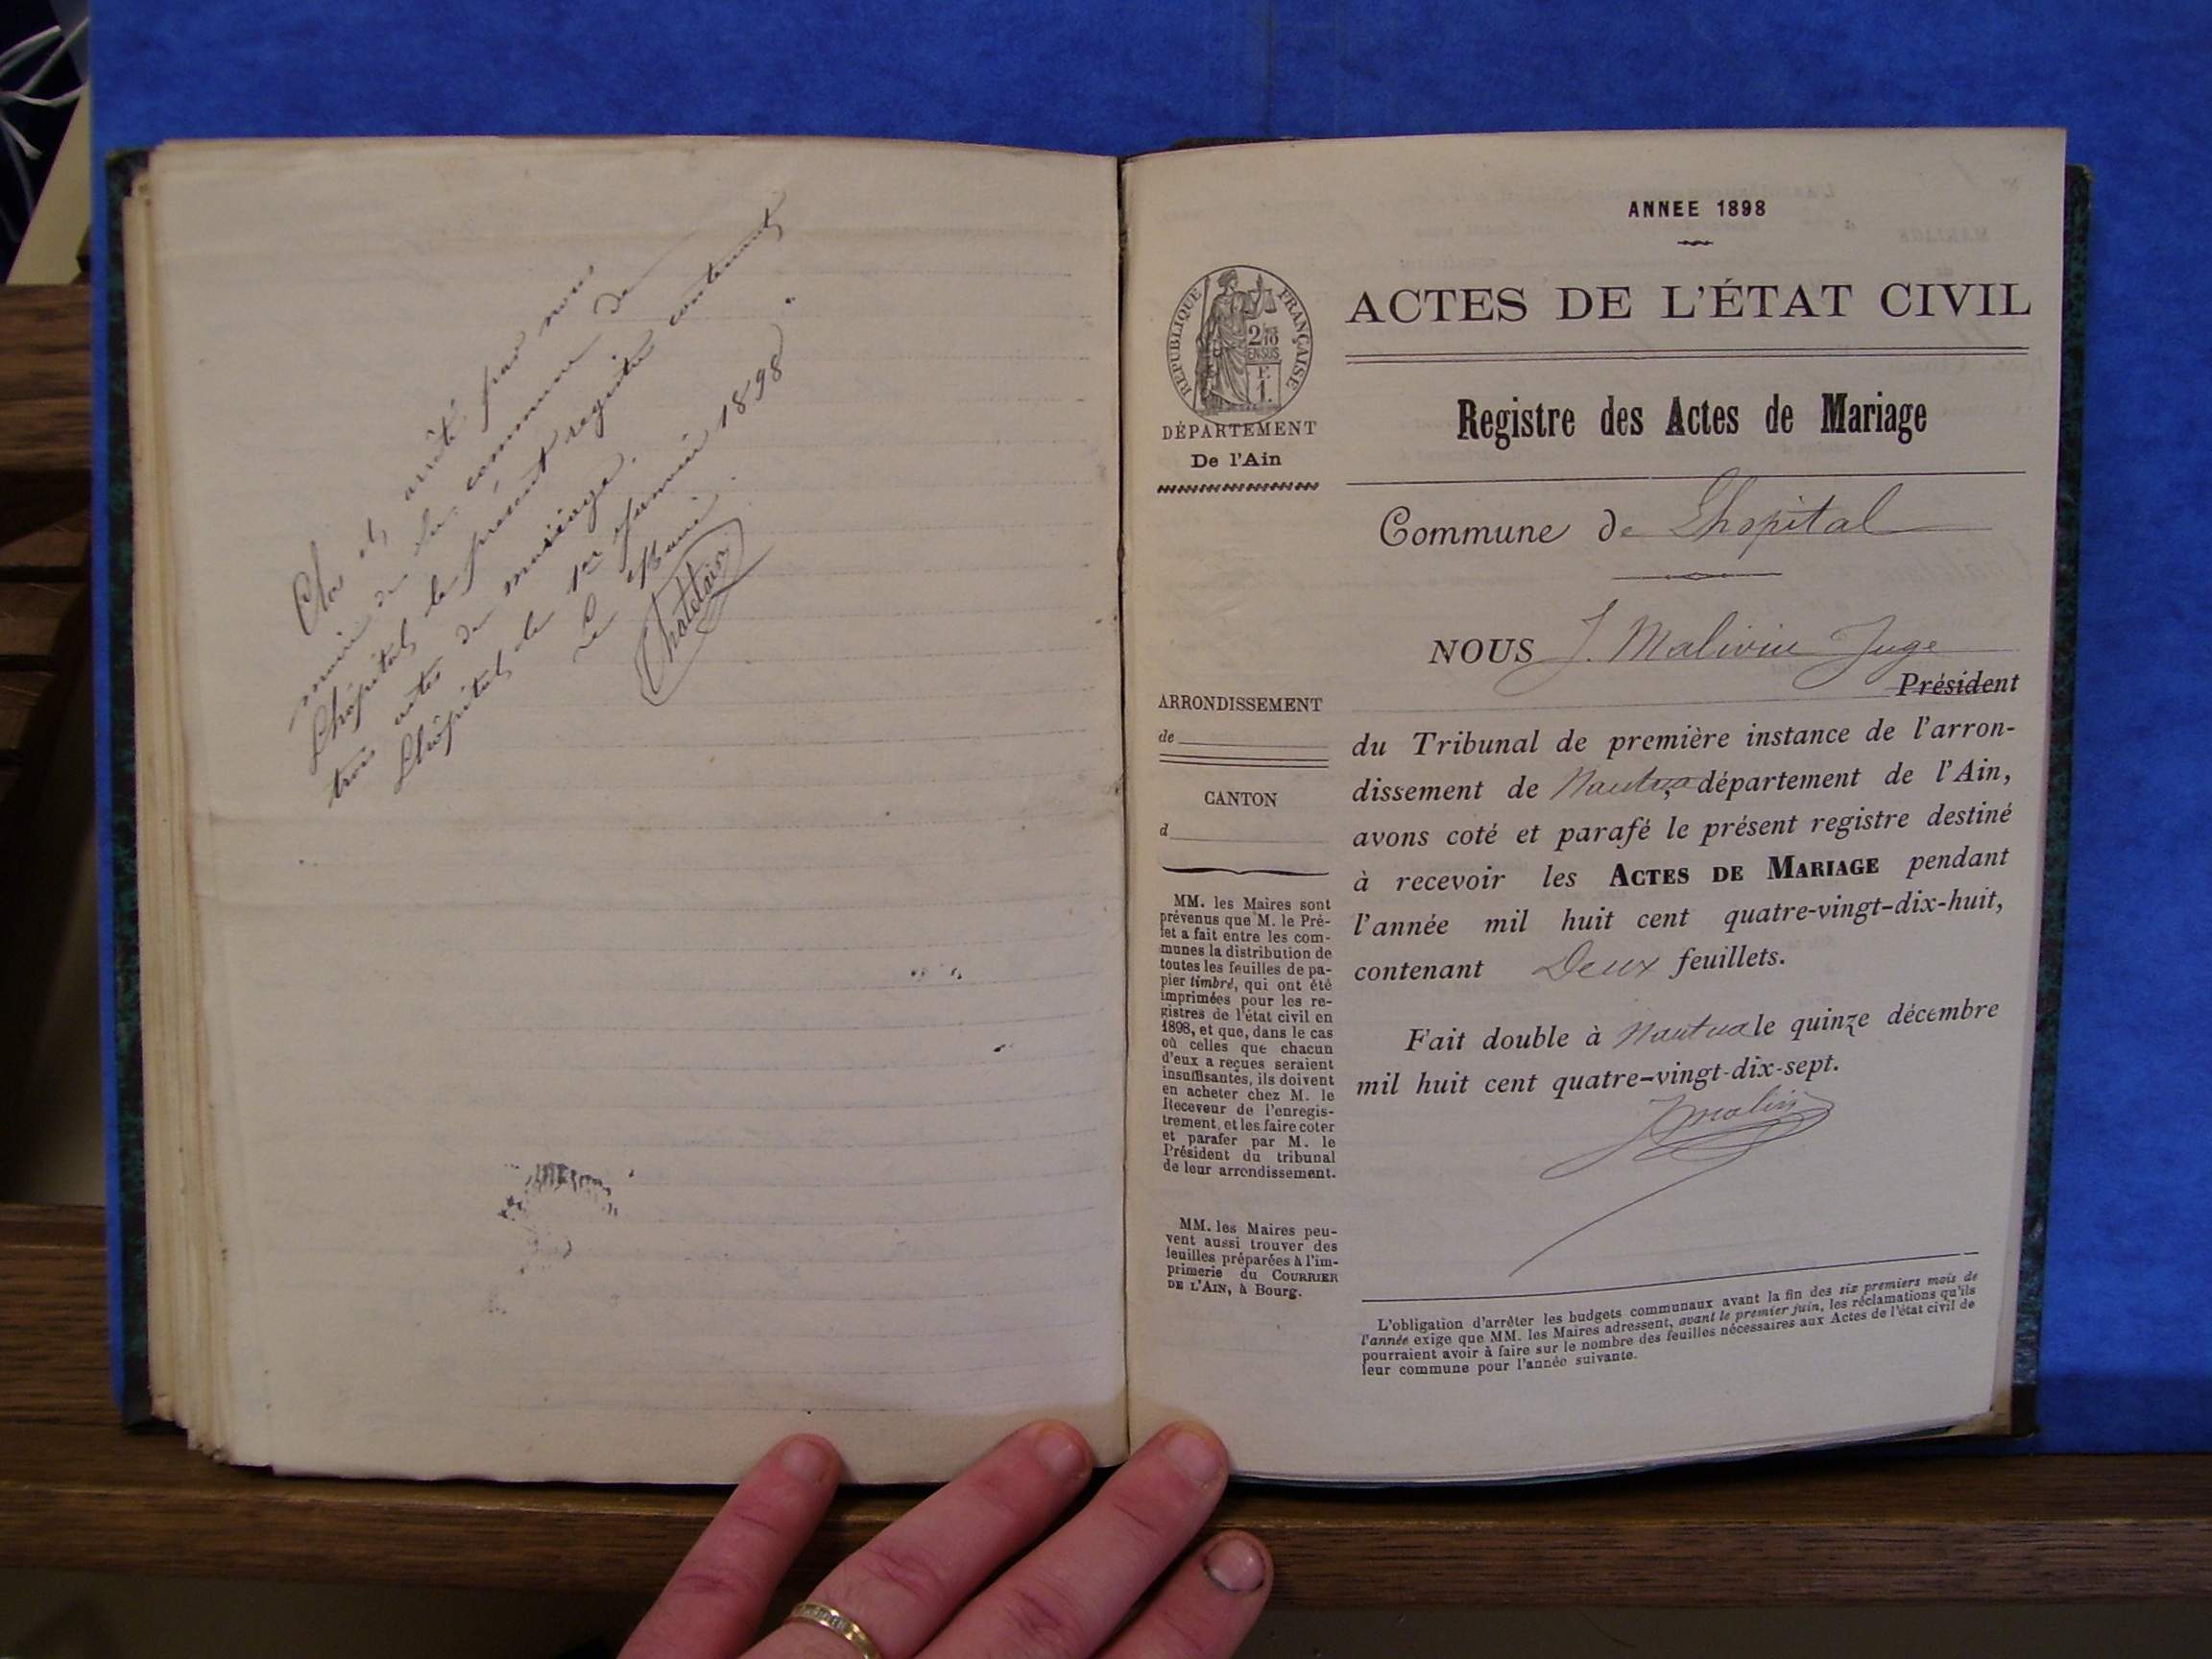 Clos et arrêté par nous
maire de la commune de
Lhôpital, le présent registre contenant
trois actes de mariage.
Lhôpital, le 1er Janvier 1898.
Le Maire.
Chatelain
ANNEE 1898
ACTES DE L'ÉTAT CIVIL
RÉPUBLIQUE FRANÇAISE
2/10
EN SUS
F.
1.
DÉPARTEMENT
De l'Ain
Registre des Actes de Mariage
Commune de Lhopital
NOUS J. Malivin Juge
Président
du Tribunal de première instance de l'arron-
dissement de Nantua, département de l'Ain,
avons coté et parafé le présent registre destiné
à recevoir les ACTES DE MARIAGE pendant
l'année mil huit cent quatre-vingt-dix-huit,
contenant Deux feuillets.
Fait double à Nantua le quinze décembre
mil huit cent quatre-vingt-dix-sept.
ARRONDISSEMENT
de
CANTON
d
MM. les Maires sont
prévenus que M. le Pré-
fet a fait entre les com-
munes la distribution de
toutes les feuilles de pa-
pier timbré, qui ont été
imprimées pour les re-
gistres de l'état civil en
1898, et que, dans le cas
où celles que chacun
d'eux a reçues seraient
insuffisantes, ils doivent
en acheter chez M. le
Receveur de l'enregis-
trement, et les faire coter
et parafer par M. le
Président du tribunal
de leur arrondissement.
MM. les Maires peu-
vent aussi trouver des
feuilles préparées à l'im-
primerie du COURRIER
DE L'AIN, à Bourg.
L'obligation d'arrêter les budgets communaux avant la fin des six premiers mois de
l'année exige que MM. les Maires adressent, avant le premier juin, les réclamations qu'ils
pourraient avoir à faire sur le nombre des feuilles nécessaires aux Actes de l'état civil de
leur commune pour l'année suivante.